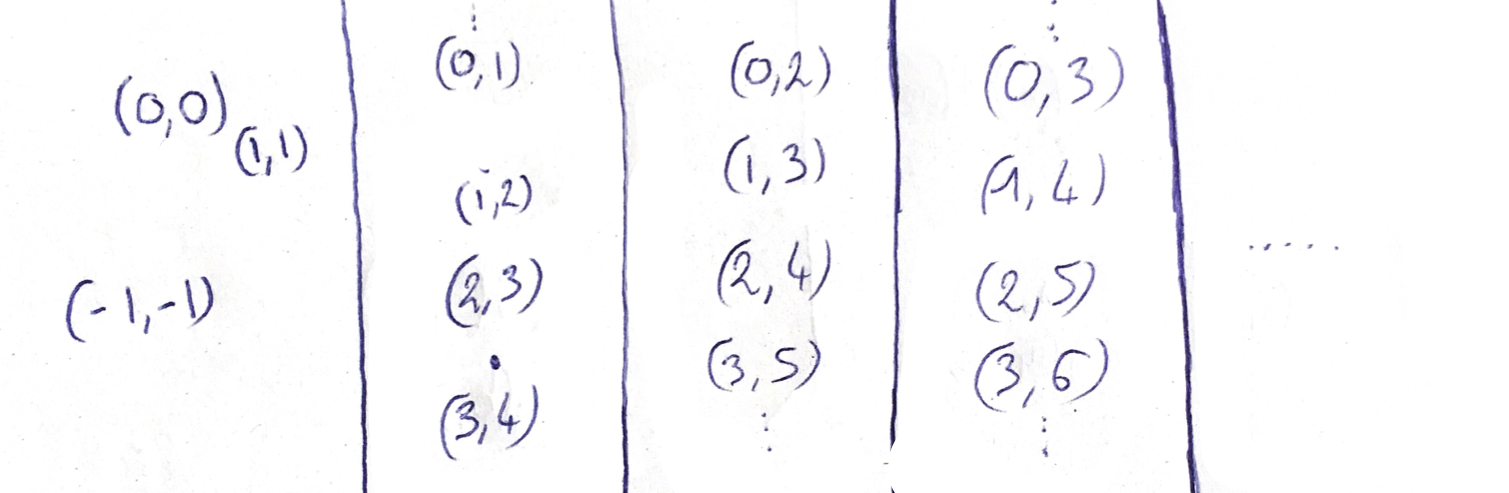 (0,0)
(1,1)
(-1,-1)
⋮
(0,1)
(1,2)
(2,3)
(3,4)
(0,2)
(1,3)
(2,4)
(3,5)
⋮
⋮
(0,3)
(1,4)
(2,5)
(3,6)
⋮
.....